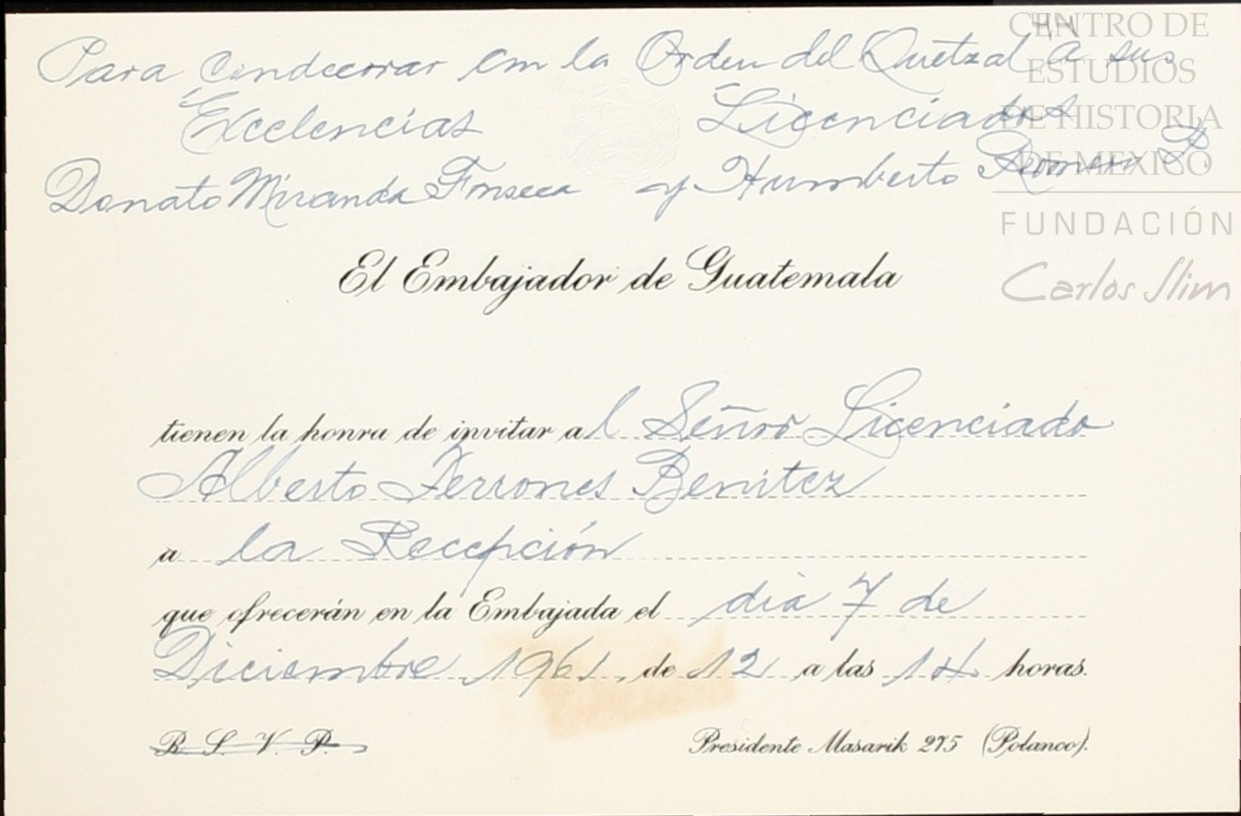 Para Condecorar con la Orden del Quetzal a sus
Excelencias Licenciados
Donato Miranda Fonseca y Humberto Romero P.
El Embajador de Guatemala
tienen la honra de invitar al Señor Licenciado
Alberto Terrones Benitez
a la Recepción
que ofrecerán en la Embajada el día 7 de
Diciembre 1961, de 12 a las 14 horas.
R. S. V. P.
Presidente Masarik 275 (Polanco).
CENTRO DE
ESTUDIOS
DE HISTORIA
DE MEXICO
FUNDACIÓN
Carlos Slim